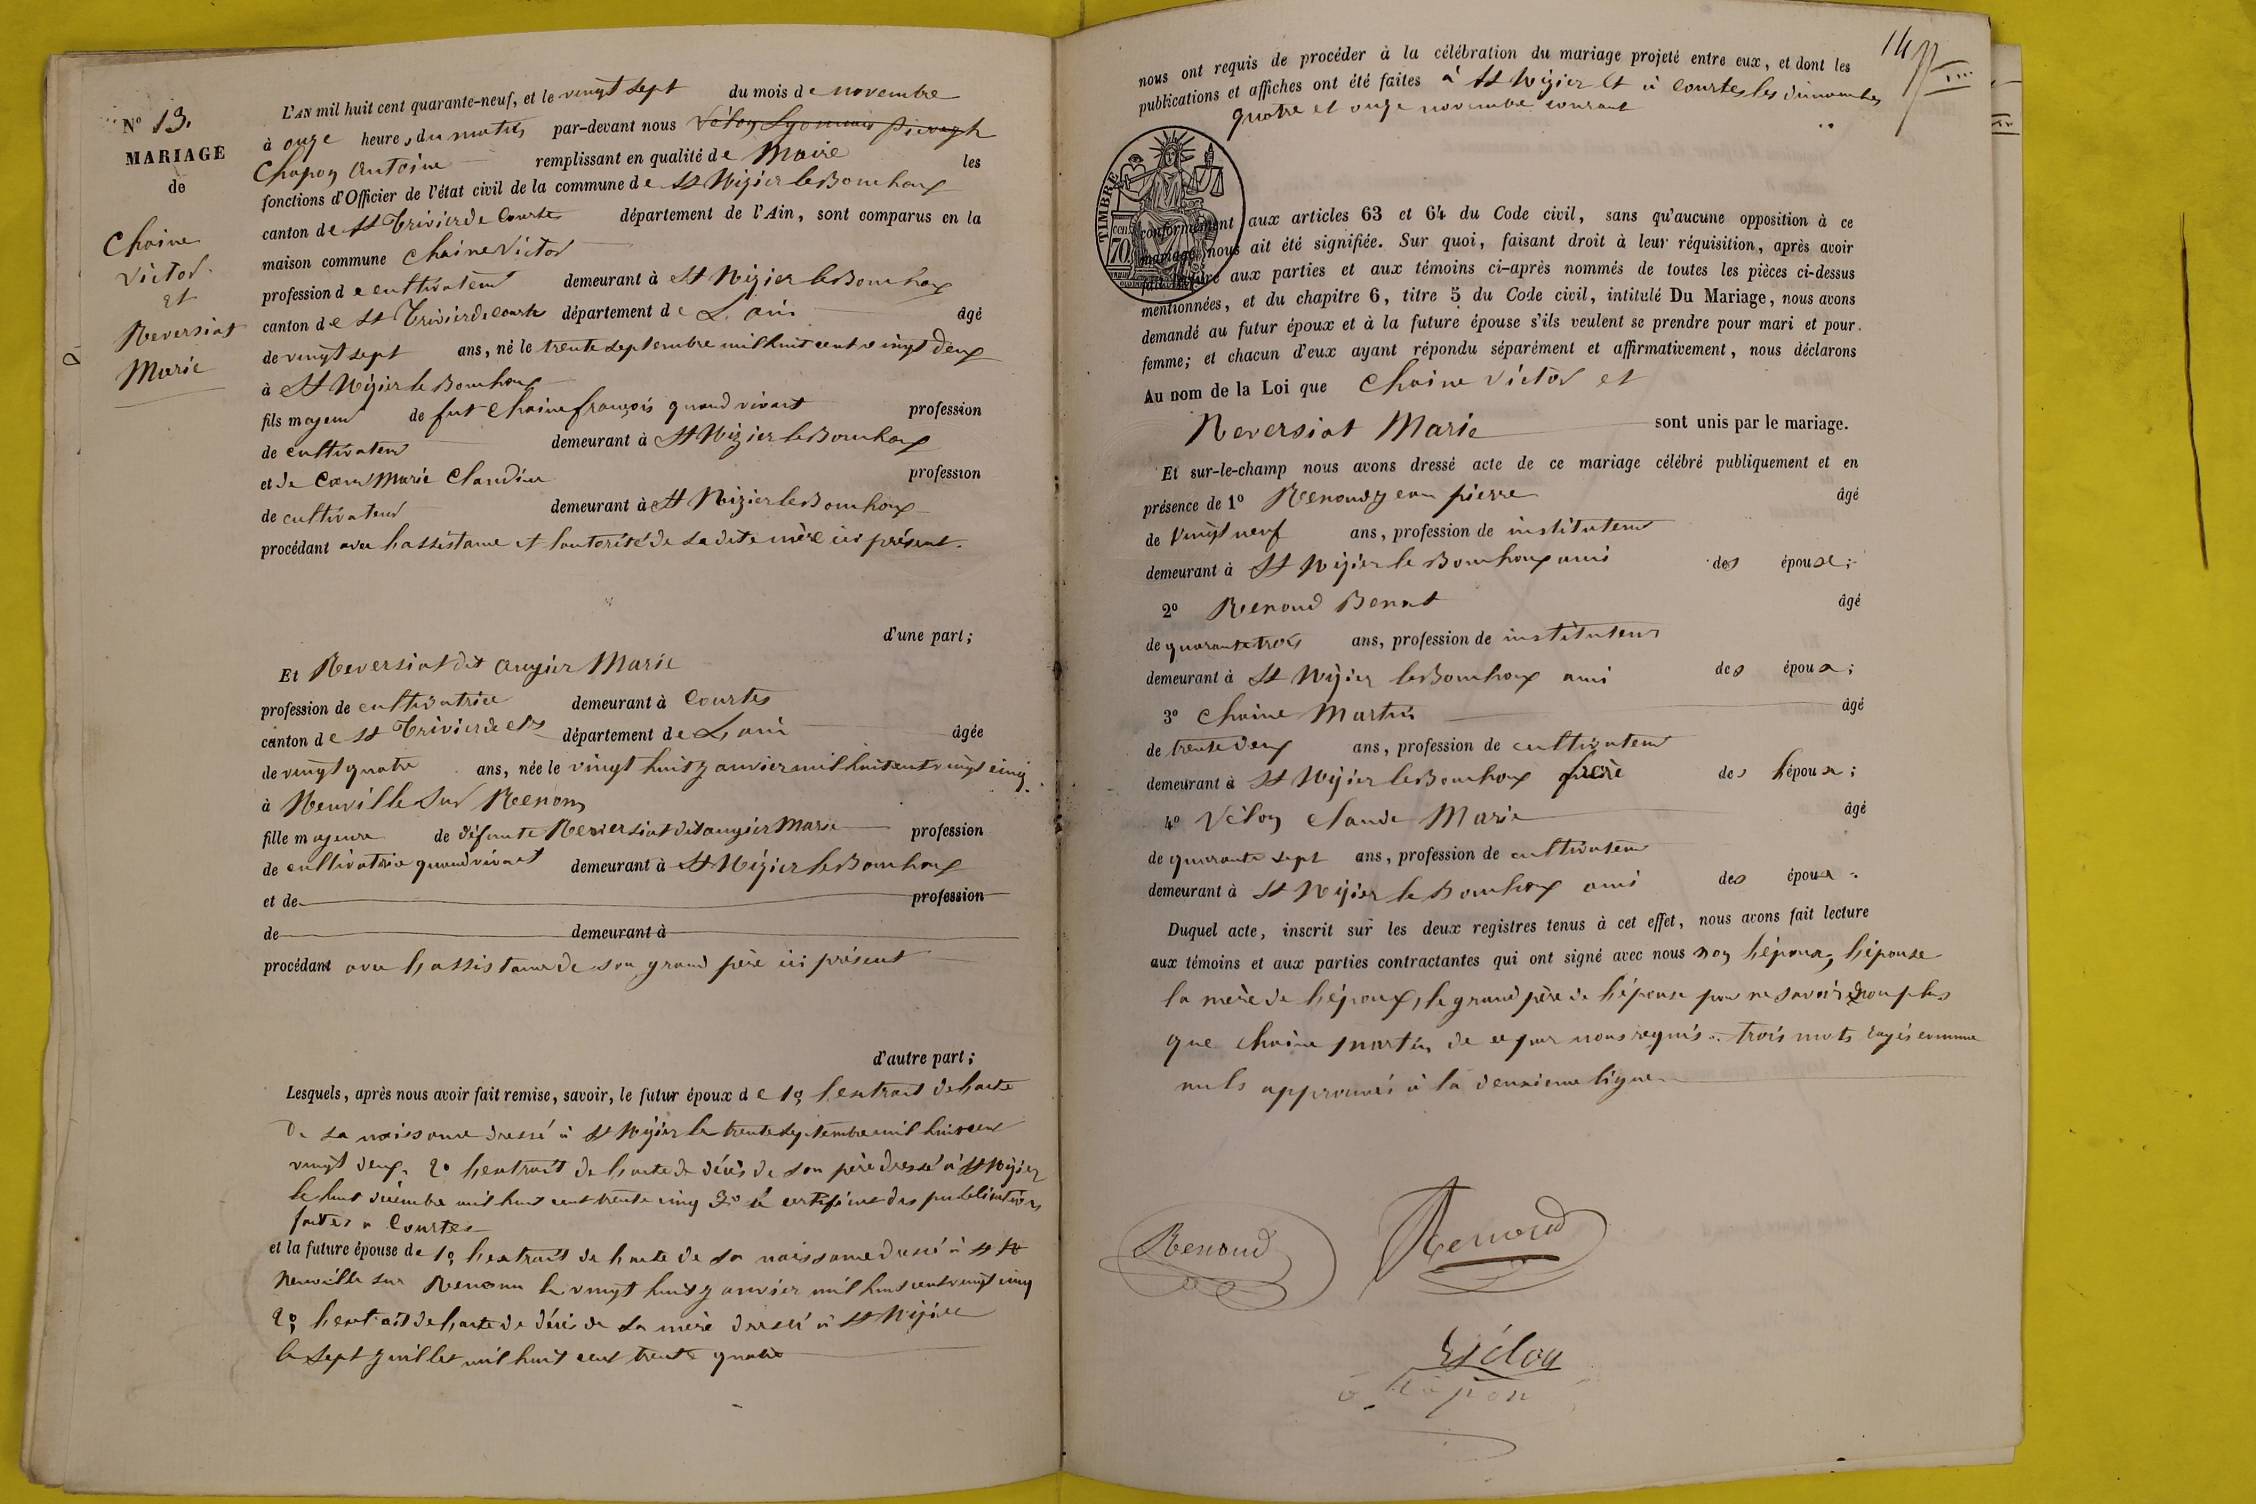 N° 13.
MARIAGE
de
Chaine
Victor
et
Reversiat
Marie
L'AN mil huit cent quarante-neuf, et le vingt sept du mois de novembre
à onze heures du matin par-devant nous Vélon Lyonnais
Chapon Antoine remplissant en qualité de Maire les
fonctions d'Officier de l'état civil de la commune de St Nizier le Bouchoux
canton de St Trivier de Courtes département de l'Ain, sont comparus en la
maison commune Chaine Victor
profession de cultivateur demeurant à St Nizier le Bouchoux
canton de St Trivier de Courtes département de L'ain âgé
de vingt sept ans, né le trente septembre mil huit cent vingt deux
à St Nizier le Bouchoux
fils majeur de fut Chaine françois quand vivait profession
de cultivateur demeurant à St Nizier le Bouchoux
et de Marie Claudine profession
de cultivateur demeurant à St Nizier le Bouchoux
procédant avec l'assistance et l'autorité de sa dite mère ici présent.
d'une part;
Et Reversiat dit augier Marie
profession de cultivatrice demeurant à Courtes
canton de St Trivier de Ctes département de L'ain âgée
de vingt quatre ans, née le vingt huit janvier mil huit cent vingt cinq
à Neuville sur Renom
fille majeure de défunte Reversiat dit augier Marie profession
de cultivatrice quand vivait demeurant à St Nizier le Bouchoux
et de profession
de demeurant à
procédant avec l'assistance de son grand père ici présent
d'autre part;
Lesquels, après nous avoir fait remise, savoir, le futur époux de 1° l'extrait de l'acte
de sa naissance dressé à St Nizier le trente septembre mil huit cent
vingt deux. 2° l'extrait de l'acte de décès de son père dressé à St Nizier
le huit décembre mil huit cent trente cinq 3° le certificat des publications
faites a Courtes
et la future épouse de 1° l'extrait de l'acte de sa naissance dressé à St N
Neuville sur Renom le vingt huit janvier mil huit cent vingt cinq
2° l'extrait de l'acte de décès de sa mère dressé à St Nizier
le sept juillet mil huit cent trente quatre
14
nous ont requis de procéder à la célébration du mariage projeté entre eux, et dont les
publications et affiches ont été faites à St Nizier et à Courtes les dimanches
quatre et onze novembre courant
TIMBRE
70 cent
conformément aux articles 63 et 64 du Code civil, sans qu'aucune opposition à ce
mariage nous ait été signifiée. Sur quoi, faisant droit à leur réquisition, après avoir
fait lecture aux parties et aux témoins ci-après nommés de toutes les pièces ci-dessus
mentionnées, et du chapitre 6, titre 5 du Code civil, intitulé Du Mariage, nous avons
demandé au futur époux et à la future épouse s'ils veulent se prendre pour mari et pour
femme; et chacun d'eux ayant répondu séparément et affirmativement, nous déclarons
Au nom de la Loi que Chaine Victor et
Reversiat Marie sont unis par le mariage.
Et sur-le-champ nous avons dressé acte de ce mariage célébré publiquement et en
présence de 1° Renoud jean pierre âgé
de vingt neuf ans, profession de instituteur
demeurant à St Nizier le Bouchoux ami des époux;
2° Renoud Benat âgé
de quarante trois ans, profession de instituteur
demeurant à St Nizier le Bouchoux ami des époux;
3° Chaine Martin âgé
de trente deux ans, profession de cultivateur
demeurant à St Nizier le Bouchoux frère de l'époux;
4° Vélon Claude Marie âgé
de quarante sept ans, profession de cultivateur
demeurant à St Nizier le Bouchoux ami des époux.
Duquel acte, inscrit sur les deux registres tenus à cet effet, nous avons fait lecture
aux témoins et aux parties contractantes qui ont signé avec nous non l'époux, l'épouse
la mère de l'époux, le grand père de l'épouse pour ne savoir non plus
que Chaine martin de ce par nous requis. trois mots rayés comme
nuls approuvés à la deuxième ligne
Renoud
Renoud
Vélon
Chapon